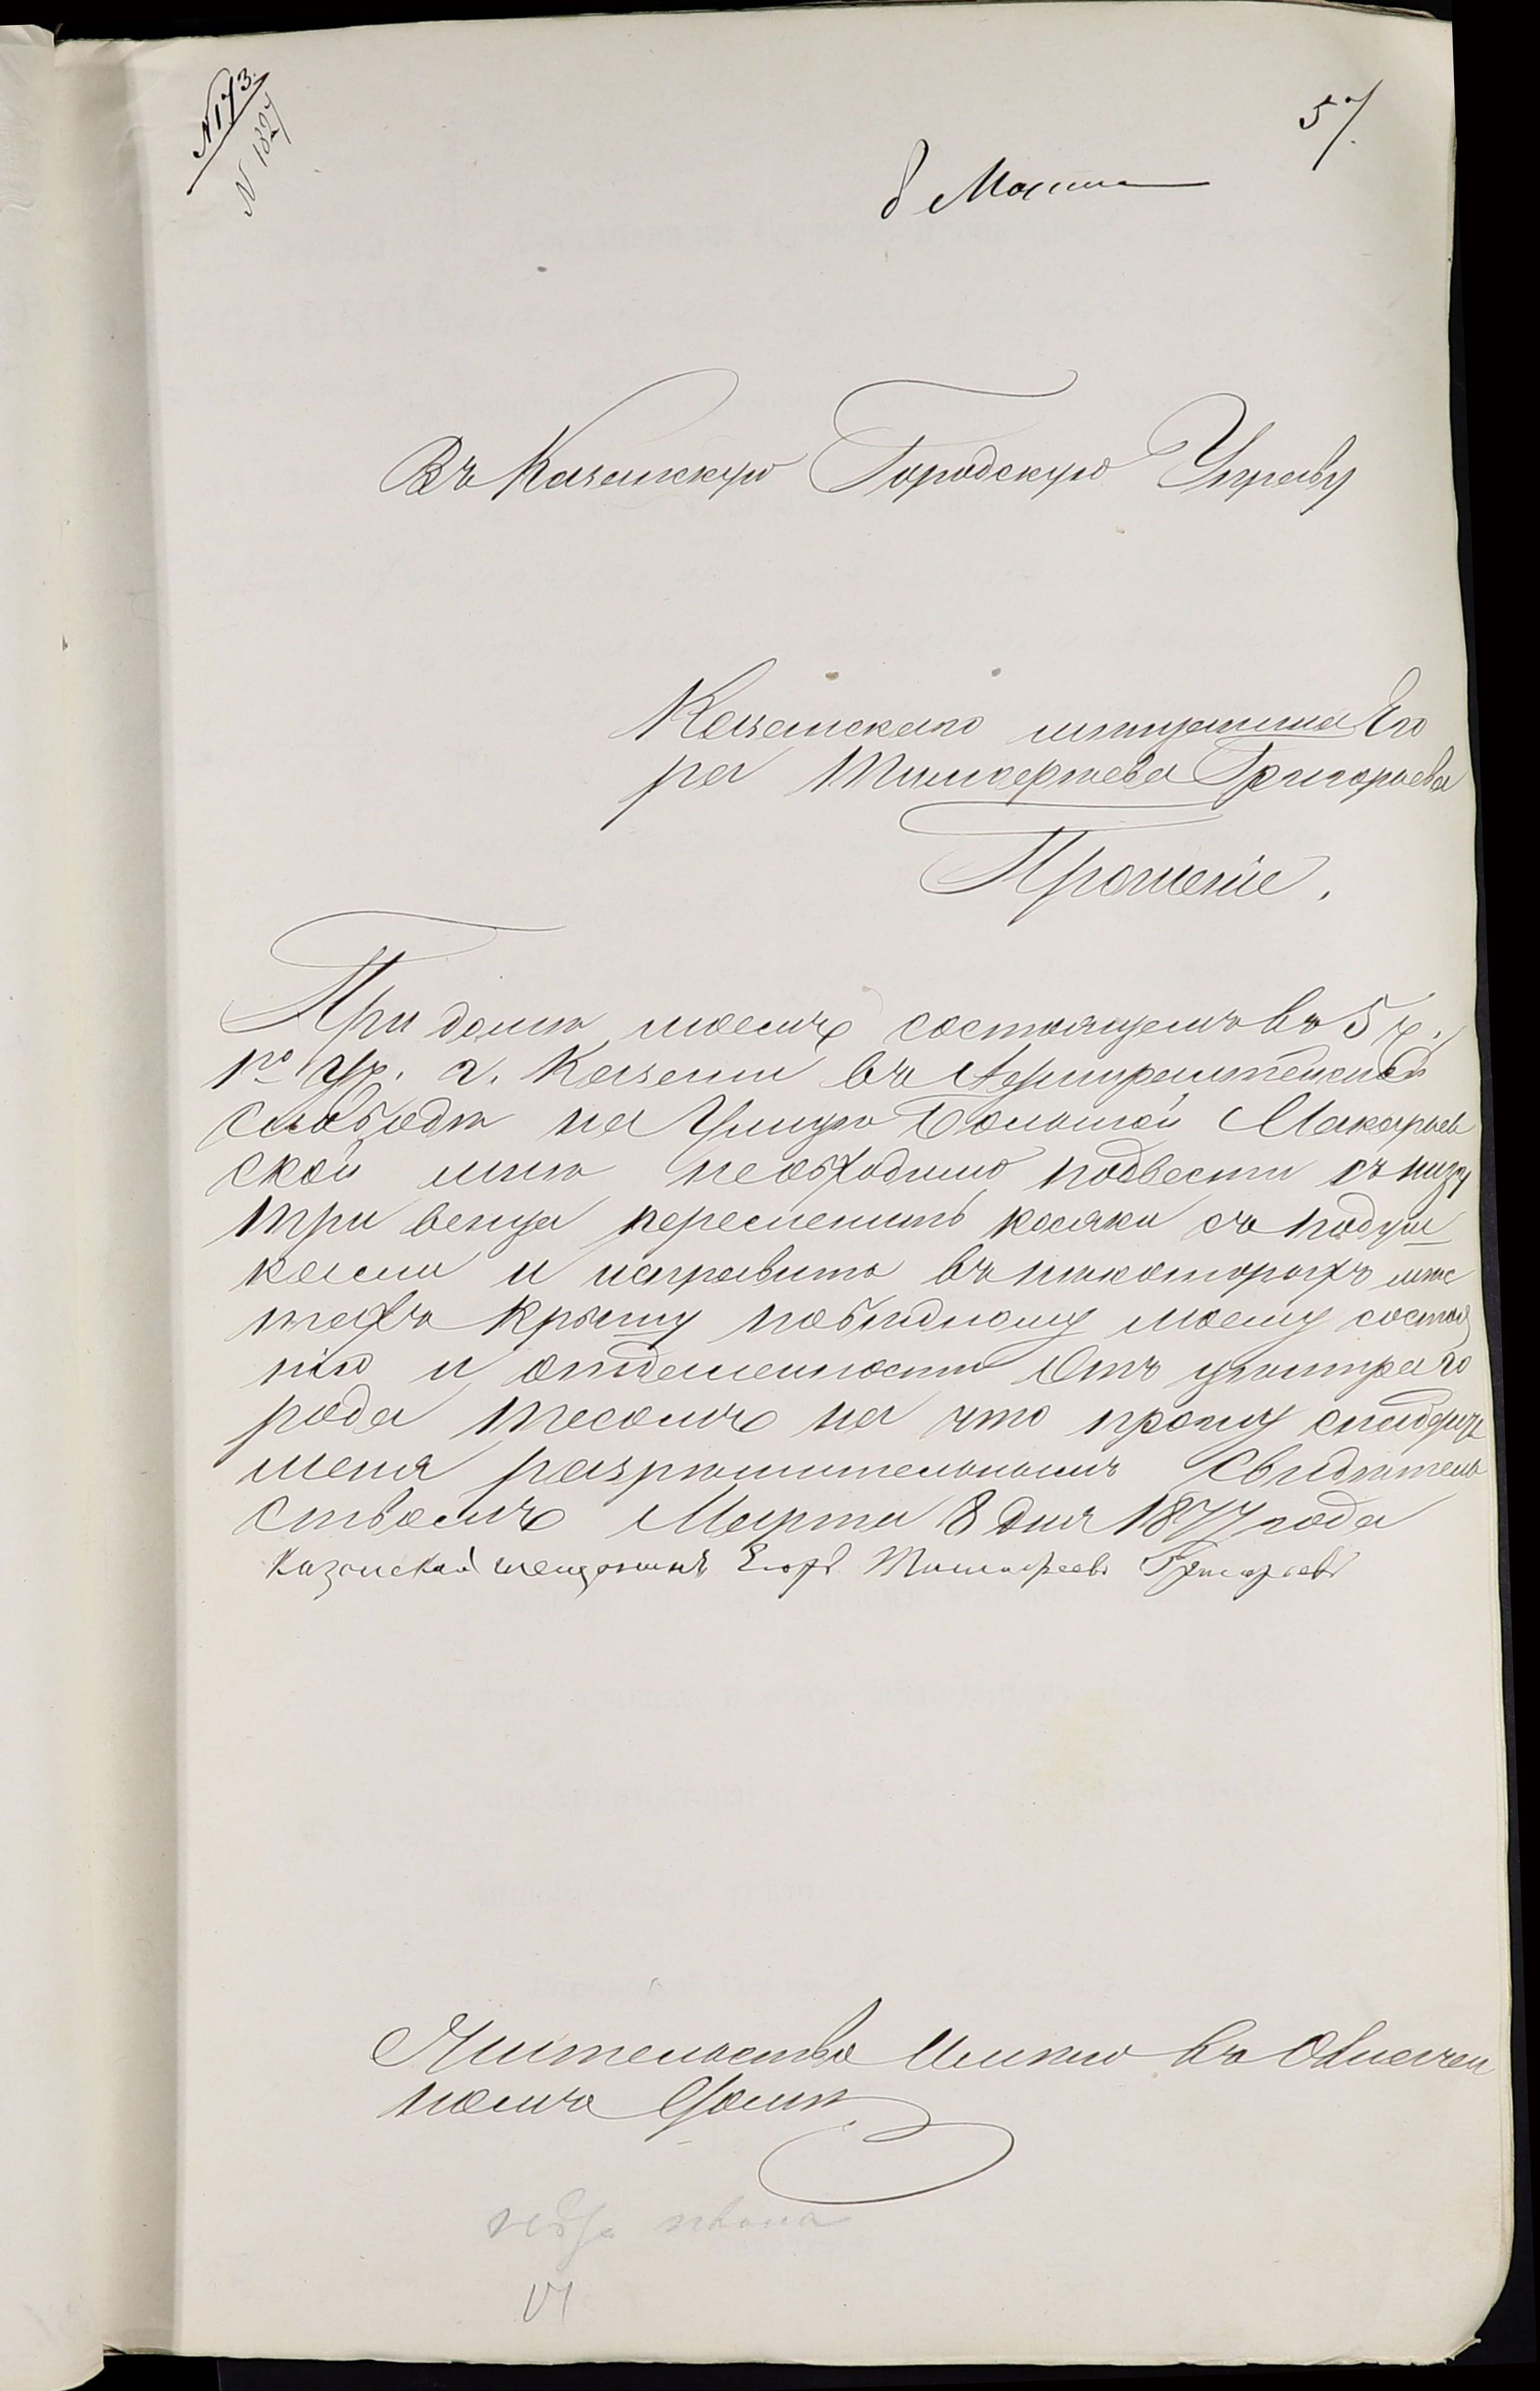 № 173.
№ 1827
57.
8 Марта
Въ Казанскую Городскую Управу
Казанскаго мещанина Его
ра Тимофеева Григорьева
Прошеніе.
При доме моемъ состоящемъ въ 5 ч.
1го ук. г. Казани въ Адмиралтейской
слободѣ на Улицѣ Большой Макарьев
ской мнѣ необходимо подвести съ низу
три венца переменить косяки съ подуш
ками и исправить въ некоторыхъ мѣс
тахъ крышу по бѣдному моему состоя
нію и отдаленности отъ центра го
рода тесомъ на что прошу снабдить
меня разрешительнымъ свидѣтель
ствомъ Марта 8 дня 1877 года
Казанскай мещанинъ Егоръ Тимофеевъ Григорьевъ
Жительство имею въ Означен
номъ Домѣ